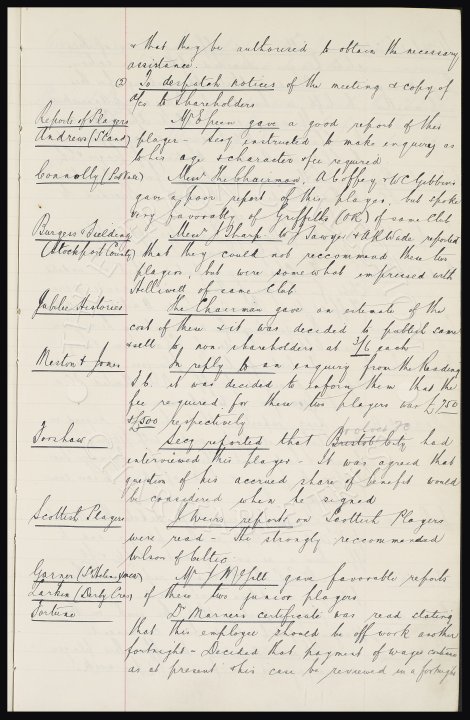 & that they be authorised to obtain the necessary
assistance.
(2) To despatch notices of the meeting & copy of
a/cs to Shareholders
Reports of Players Mr Green gave a good report of this
Andrews (S'land) player - Secy instructed to make enquiry as
to his age & character & fee required
Connolly (Port Vale) Messrs The Chairman, A Coffey & W C Gibbins
gave a poor report of this player, but spoke
very favorably of Griffiths (OR) of same club
Burgess & Fielding Messrs J Sharp W J Sawyer & A R Wade reported
(Stockport County) that they could not reccommend these two
players but were somewhat impressed with
Halliwell of same club
Jubilee Histories The Chairman gave an estimate of the
cost of these & it was decided to publish same
& sell to non shareholders at 3/6 each
Meston & Jones In reply to an enquiry from the Reading
F.C. it was decided to inform them that the
fee required for these two players was £750
& £1,500 respectively
Forshaw Secy reported that Bristol City Wolves FC had
interviewed this player - It was agreed that
question of his accrued share of benefit would
be considered when he signed
Scottish Players J Weirs reports on Scottish Players
were read - He strongly reccommended
Wilson of Celtic
Garner (St Helens YMCA) Mr J McGill gave favorable reports
Larkin (Derby Cross) of these two junior players
Fortune Dr Marnes certificate was read stating
that this employee should be off work another
fortnight - Decided that payment of wages continue
as at present & his case be reviewed in a fortnight